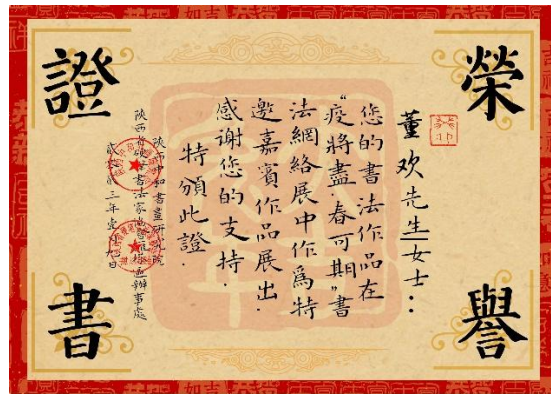 榮譽
證書
董欢先生女士：
您的書法作品在
“疫將盡·春可期”書
法網絡展中作爲特
邀嘉賓作品展出·
感谢您的支持·
特頒此證·
陝西中和書畫研究院
陝西省硬筆書法家協會雁塔區辦事處